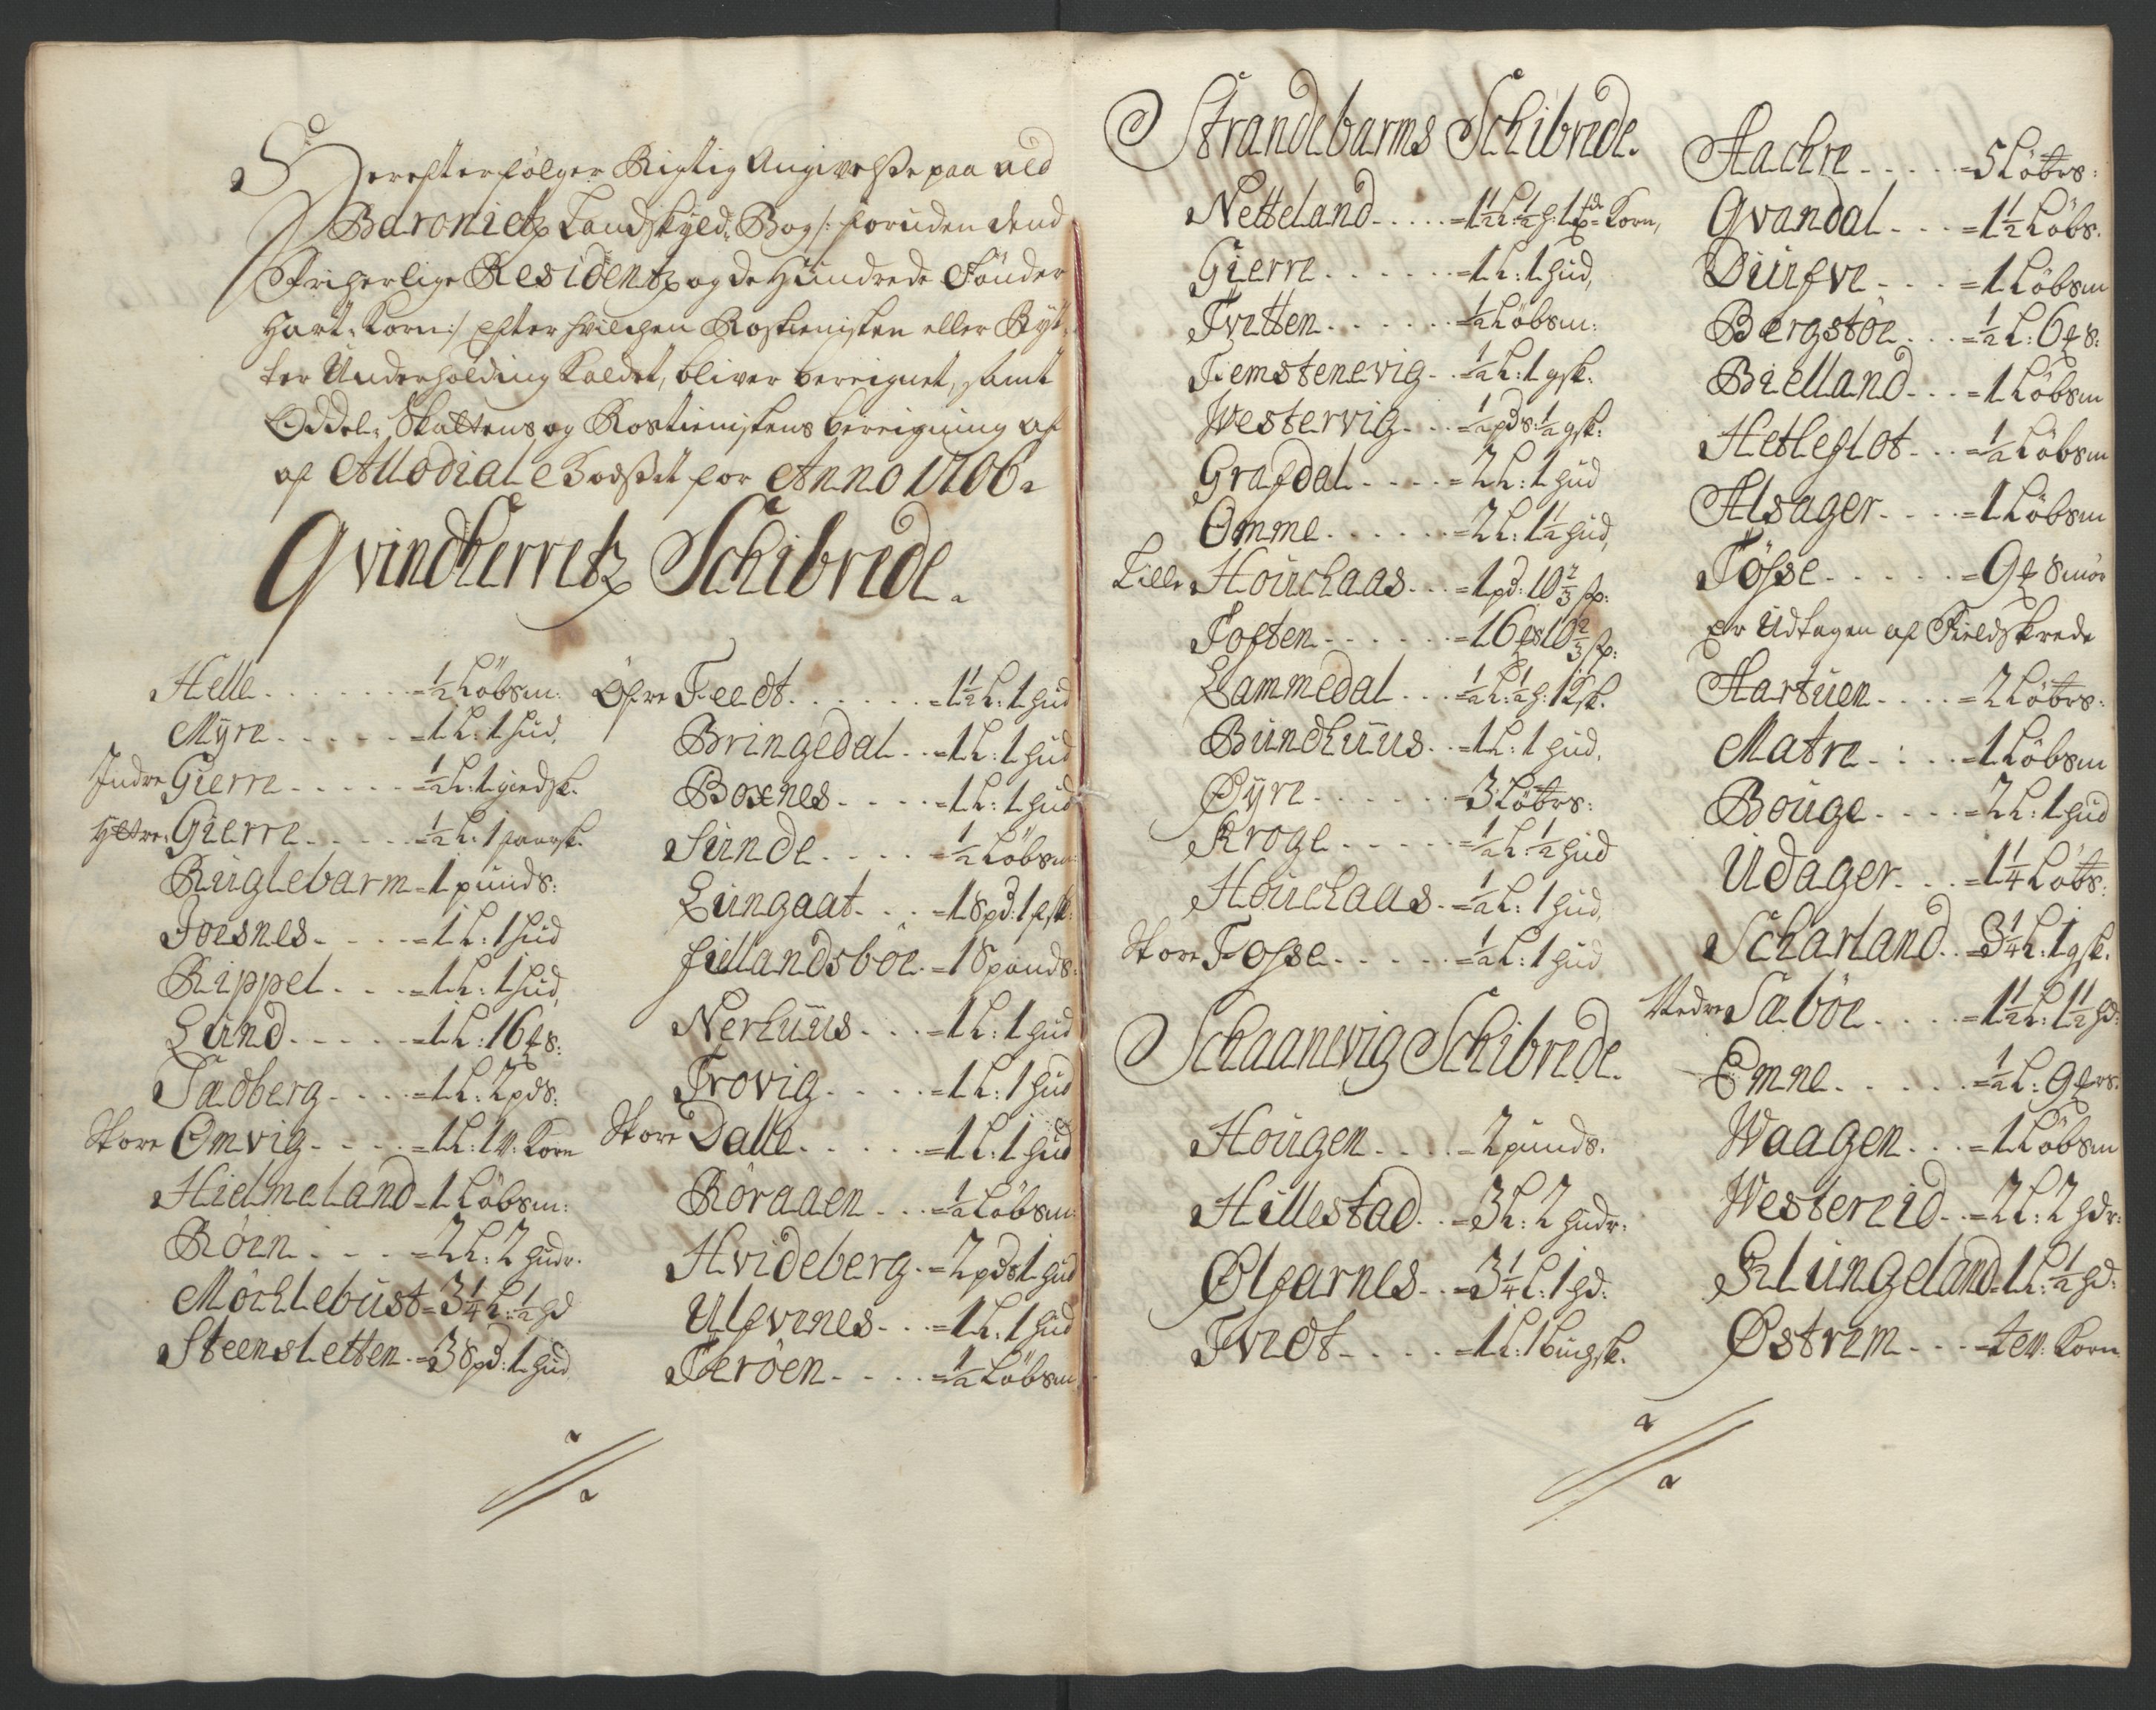 Herefter følger Rigtig Angivelse paa ald
Baroniets Landskyld, Bog /: foruden dend
Friherlige Residentz og de Hundrede Tönder
Hart-Korn :/ Efter hvilchen Rostienisten eller Ryt-
ter Underholding kaldet, bliver bereignet, samt
Oddel-Skattens og Rostienistens bereigning af
af Allodiale Godset for Anno 1706.
Qvindherretz Schibrede.
Helle - - - = ½ Löbsm:
Myre - - - = 1 L: 1 hud,
Indre Gierre - - - = ½ L: 1 giedsk.
Yttre: Gierre - - - = ½ L: 1 faarsk.
Ruglebarm = 1 punds:
Joesnes - - - = 1 L: 1 hud
Rippel - - - = 1 L: 1 hud,
Lund - - - = 1 L: 16 ℔s:
Sædberg - - - = 1 L: 2 pds:
Store Omvig - - - = 1 L: 1 V: Korn
Hielmeland = 1 Löbsm:
Röen - - - = 2 L: 2 hudr.
Möchlebust = 3¼ L: ½ hd
Steensletten = 3 Spd: 1 hud
Öfre Feedt - - - = 1½ L: 1 hud
Bringedal - - = 1 L: 1 hud
Boxnes - - - = 1 L: 1 hud
Sunde - - - = ½ Löbsm:
Lungaat - - - = 1 Spd: 1 fsk:
fiellandsböe = 1 Spands:
Nerhuus - - - = 1 L: 1 hud
Trovig - - - = 1 L: 1 hud
Store Dalle - - - = 1 L: 1 hud
Röraaen - - - = ½ Löbsm:
Hvideberg - = 2 pds 1 hud
Ulfvenes - - - = 1 L: 1 hud
Teröen - - - = ½ Löbsm
Strandebarms Schibrede.
Netteland - - - = 1½ L: ½ h: 1 Korn,
Gierre - - - = 1 L: 1 hud,
Tvetten - - - = ½ Löbsm:
Femstenevig - = ½ L: 1 gsk:
Westervig - - - = ½ pds: ½ gsk:
Grafdal - - - = 2 L: 1 hud
Omme - - - = 2 L: 1½ hud,
Lille Houchaas - - = 1 pd: 10⅔ ß:
Toften - - - = 16 ℔s 10⅔ ß:
Lammedal - - - = ½ L: ½ h: 1 ksk.
Bundhuus - - = 1 L: 1 hud,
Øyre - - - = 3 Löbs:
Kroge - - - = ½ L: ½ hud
Houchaas - = ½ L: 1 hud,
Store Fosse - - - = ½ L: 1 hud
Schaanevig Schibrede.
Hougen - - - = 2 punds.
Hillestad - - = 3 L: 2 hudr:
Ølfarnes - - = 3¼ L: 1 hd:
Tvedt - - - = 1 L: 1 bugsk.
Aachre - - - = 5 Löbs:
Qvandal - - - = 1½ Löbs.
Diürfve - - - = 1 Löbsm
Bergstöe - - - = ½ L: 6 ℔s:
Bielland - - - = 1 Löbsm
Hetleflot - - - = ½ Löbsm
Alsager - - - = 1 Löbsm
Tösse - - - = 9 ℔ Smör
er Udtagen af Fieldskrede
Aartuen - - - = 2 Löbs:
Matre - - - = 1 Löbsm
Bouge - - - = 2 L: 1 hud
Udager - - - = 1¼ Löbs:
Scharland - - = 3¼ L: 1 gsk.
Nedre Sæböe - - - = 1½ L: 1½ hd:
Emne - - - = ½ L: 9 ℔rs.
Waagen - - - = 1 Löbsm
Westereid - - = 2 L: 2 hdr:
Klungeland = 1 L: ½ hd:
Østrem - - - = V: Korn